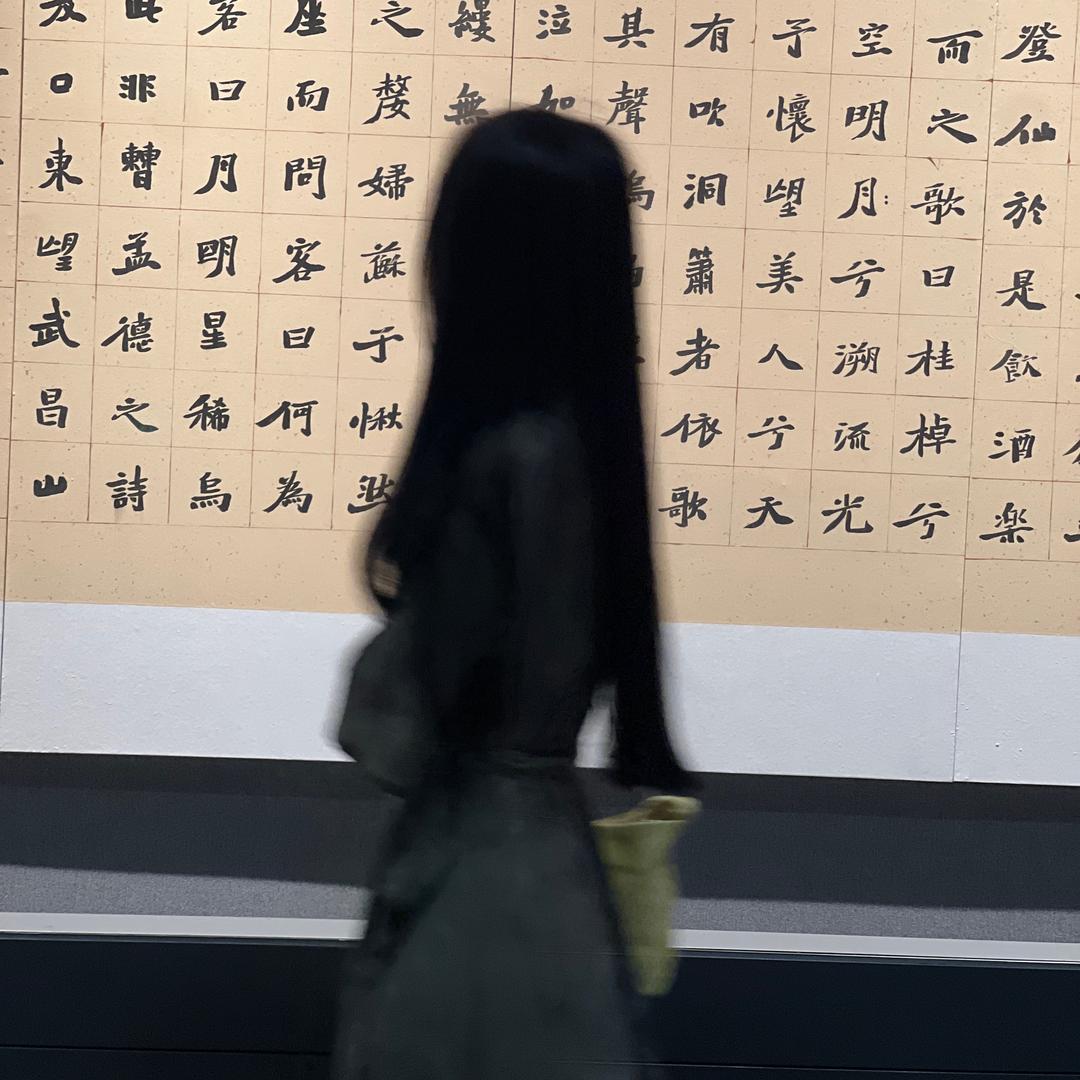 登仙於是飲酒楽
而之歌曰桂棹兮
空明月兮溯流光
予懷望美人兮天
有吹洞簫者依歌
其聲
泣如
縷無
之嫠婦蘇子愀然
座而問客曰何為
客曰月明星稀烏
此非曹孟德之詩
口東望武昌山